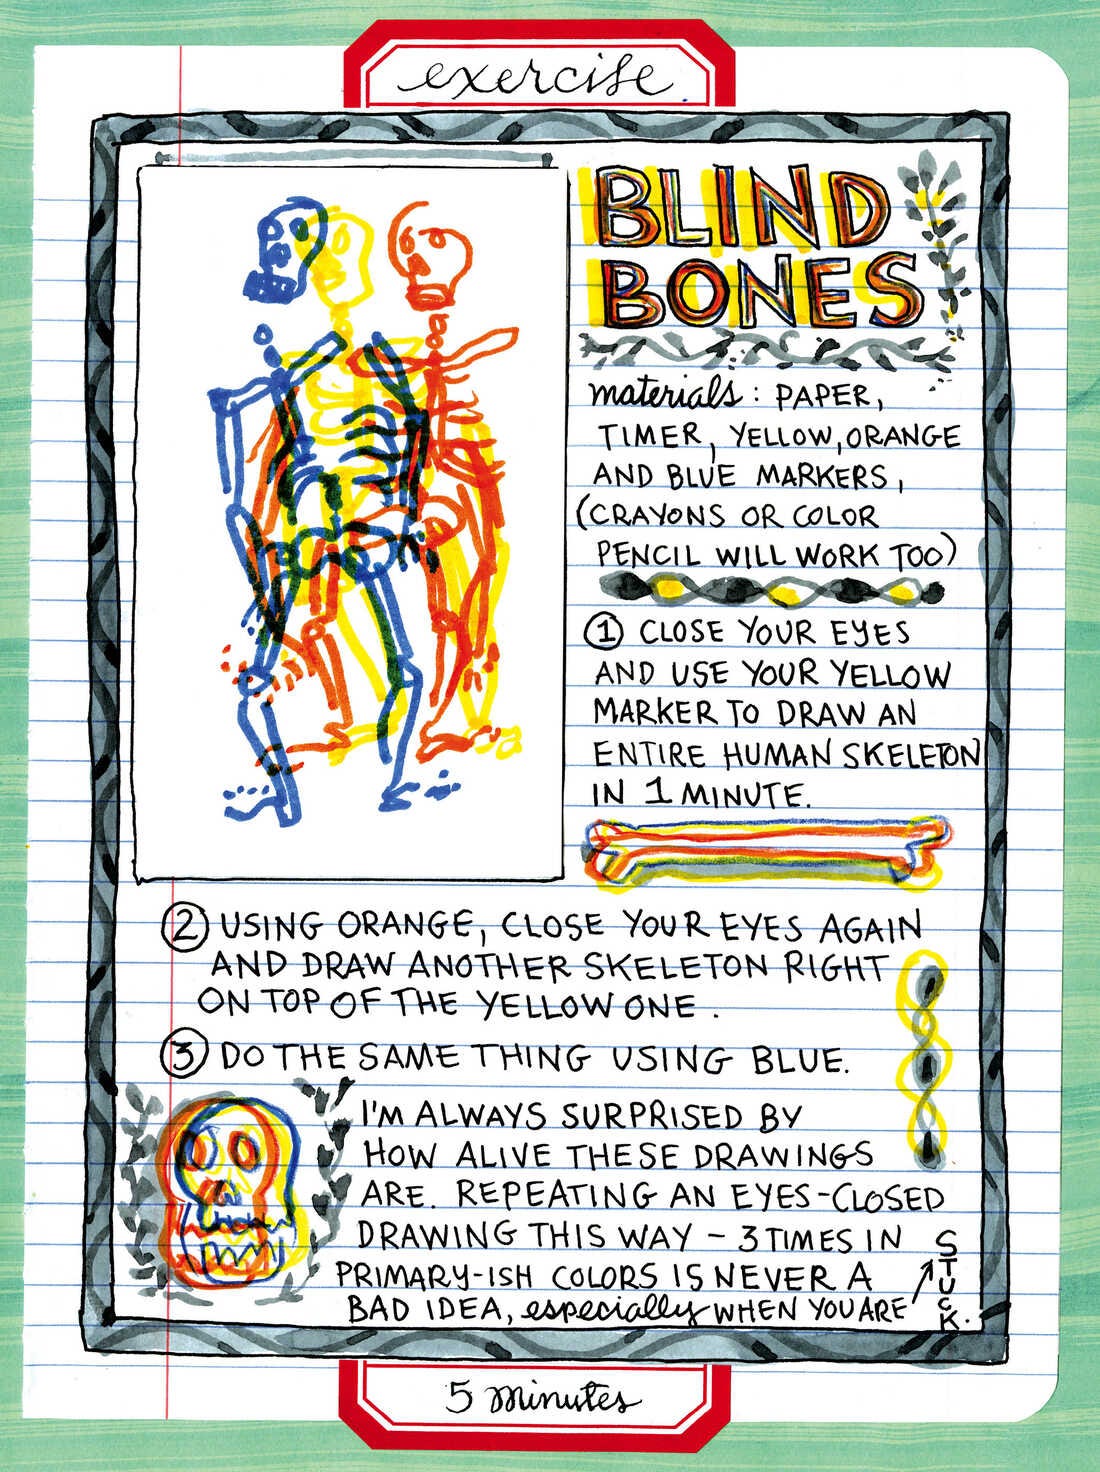 exercise
BLIND
BONES
materials: PAPER,
TIMER, YELLOW, ORANGE
AND BLUE MARKERS,
(CRAYONS OR COLOR
PENCIL WILL WORK TOO)
① CLOSE YOUR EYES
AND USE YOUR YELLOW
MARKER TO DRAW AN
ENTIRE HUMAN SKELETON
IN 1 MINUTE.
② USING ORANGE, CLOSE YOUR EYES AGAIN
AND DRAW ANOTHER SKELETON RIGHT
ON TOP OF THE YELLOW ONE.
③ DO THE SAME THING USING BLUE.
I'M ALWAYS SURPRISED BY
HOW ALIVE THESE DRAWINGS
ARE. REPEATING AN EYES-CLOSED
DRAWING THIS WAY – 3 TIMES IN
PRIMARY-ISH COLORS IS NEVER A
BAD IDEA, especially WHEN YOU ARE
STUCK.
5 minutes